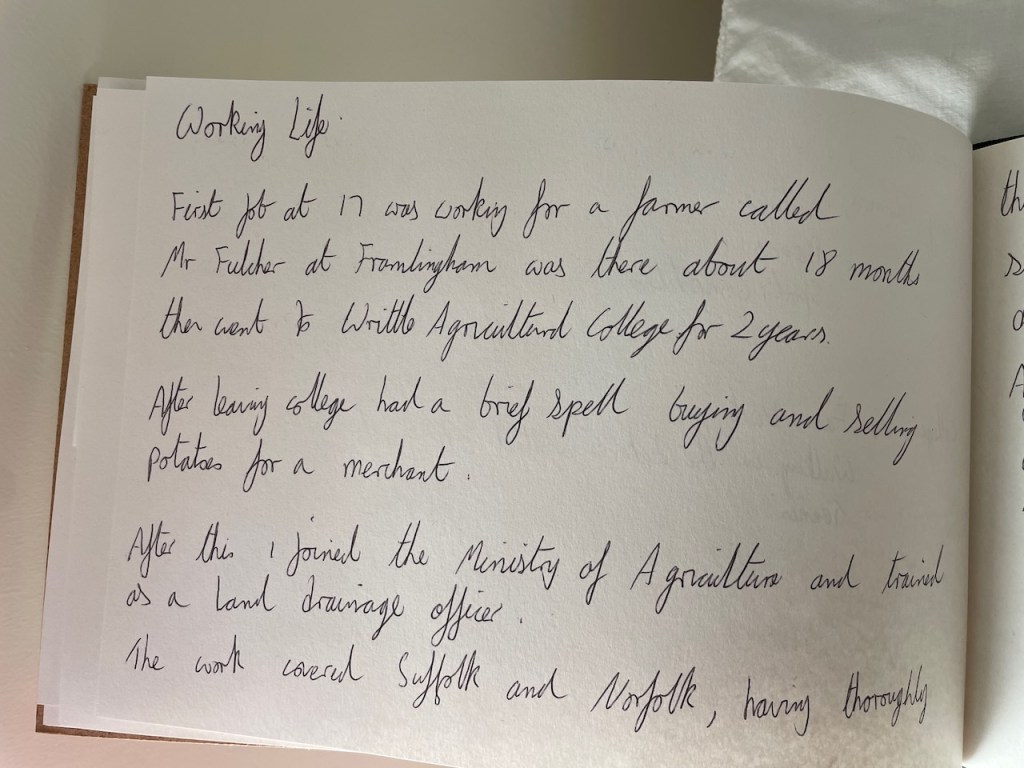 Working Life.
First job at 17 was working for a farmer called
Mr Fulcher at Framlingham was there about 18 months
then went to Writtle Agricultural College for 2 years.
After leaving college had a brief spell buying and selling
potatoes for a merchant.
After this I joined the Ministry of Agriculture and trained
as a land drainage officer.
The work covered Suffolk and Norfolk, having thoroughly